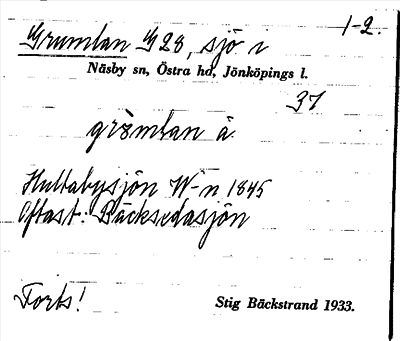 1-2.
Grumlan G28, sjö i
Näsby sn, Östra hd, Jönköpings l.
37
grömlan â
Hultabysjön W-n 1845
Oftast: Bäcksedasjön
Forts!
Stig Bäckstrand 1933.